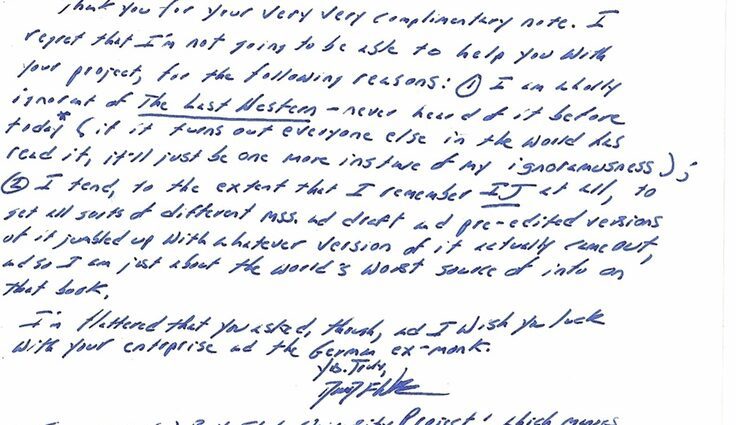 Thank you for your very very complimentary note. I
regret that I'm not going to be able to help you with
your project, for the following reasons: ① I am wholly
ignorant of The Last Western - never heard of it before
today* (if it turns out everyone else in the world has
read it, it'll just be one more instance of my ignoramusness);
② I tend, to the extent that I remember IJ at all, to
get all sorts of different mss. and draft and pre-edited versions
of it jumbled up with whatever version of it actually came out,
and so I am just about the world's worst source of info on
that book.
I'm flattered that you asked, though, and I wish you luck
with your enterprise and the German ex-monk.
Yrs. Truly,
Project, which means